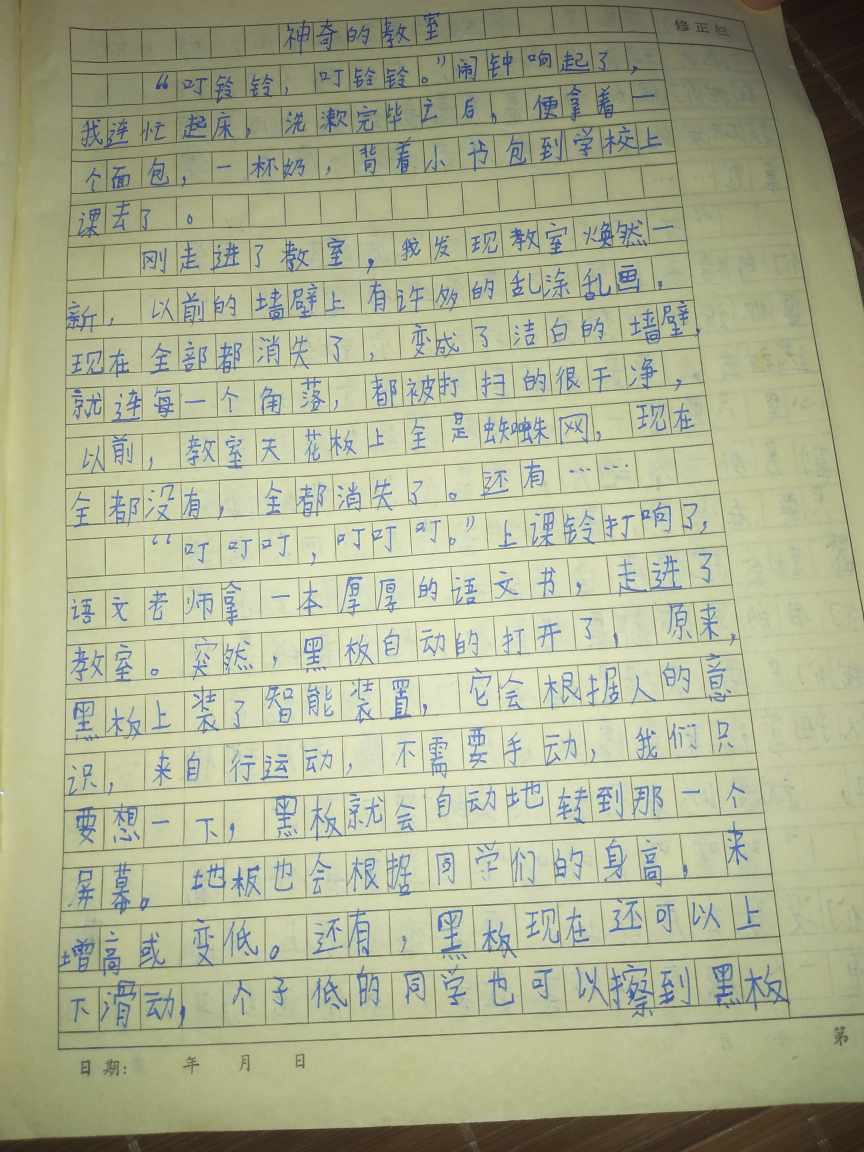 神奇的教室
修正栏
“叮铃铃，叮铃铃。”闹钟响起了，
我连忙起床，洗漱完毕之后，便拿着一
个面包，一杯奶，背着小书包到学校上
课去了。
刚走进了教室，我发现教室焕然一
新，以前的墙壁上有许多的乱涂乱画，
现在全部都消失了，变成了洁白的墙壁，
就连每一个角落，都被打扫的很干净，
以前，教室天花板上全是蜘蛛网，现在
全都没有，全都消失了。还有……
“叮叮叮，叮叮叮。”上课铃打响了，
语文老师拿一本厚厚的语文书，走进了
教室。突然，黑板自动的打开了，原来，
黑板上装了智能装置，它会根据人的意
识，来自行运动，不需要手动，我们只
要想一下，黑板就会自动地转到那一个
屏幕。地板也会根据同学们的身高，来
增高或变低。还有，黑板现在还可以上
下滑动，个子低的同学也可以擦到黑板
日期： 年 月 日
第